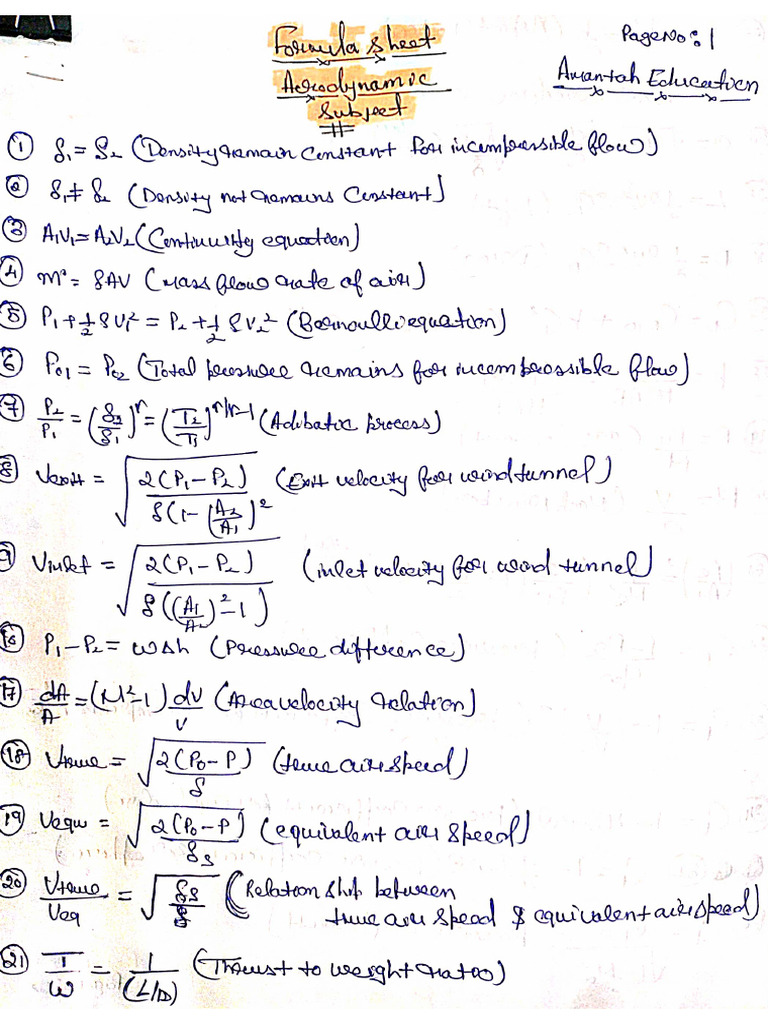 Formula sheet
PageNo:1
Aerodynamic
Amantah Education
Subject
① ρ₁ = ρ₂ (Density remain Constant for incompressible flow)
② ρ₁ ≠ ρ₂ (Density not remains Constant)
③ A₁V₁ = A₂V₂ (Continuity equation)
④ m° = ρAV (Mass flow rate of air)
⑤ P₁ + 1/2 ρV₁² = P₂ + 1/2 ρV₂² (Bernoulli equation)
⑥ P₀₁ = P₀₂ (Total pressure remains for incompressible flow)
⑦ P₂/P₁ = (ρ₂/ρ₁)^r = (T₂/T₁)^r/r-1 (Adibatic process)
8 Vexit = √(2(P₁-P₂) / ρ(1-(A₂/A₁)²) (Exit velocity for wind tunnel)
9 Vinlet = √(2(P₁-P₂) / ρ((A₁/A₂)²-1)) (inlet velocity for wind tunnel)
16 P₁-P₂ = wΔh (Pressure difference)
17 dA/A = (M²-1) dV/V (Area velocity relation)
⑱ Vtrue = √(2(P₀-P)/ρ) (true air speed)
⑲ Vequ = √(2(P₀-P)/ρs) (equivalent air speed)
⑳ Vtrue/Veq = √(ρs/ρ) (Relation ship between
true air speed & equivalent air speed)
㉑ T/W = 1/(L/D) (Thrust to weight ratio)